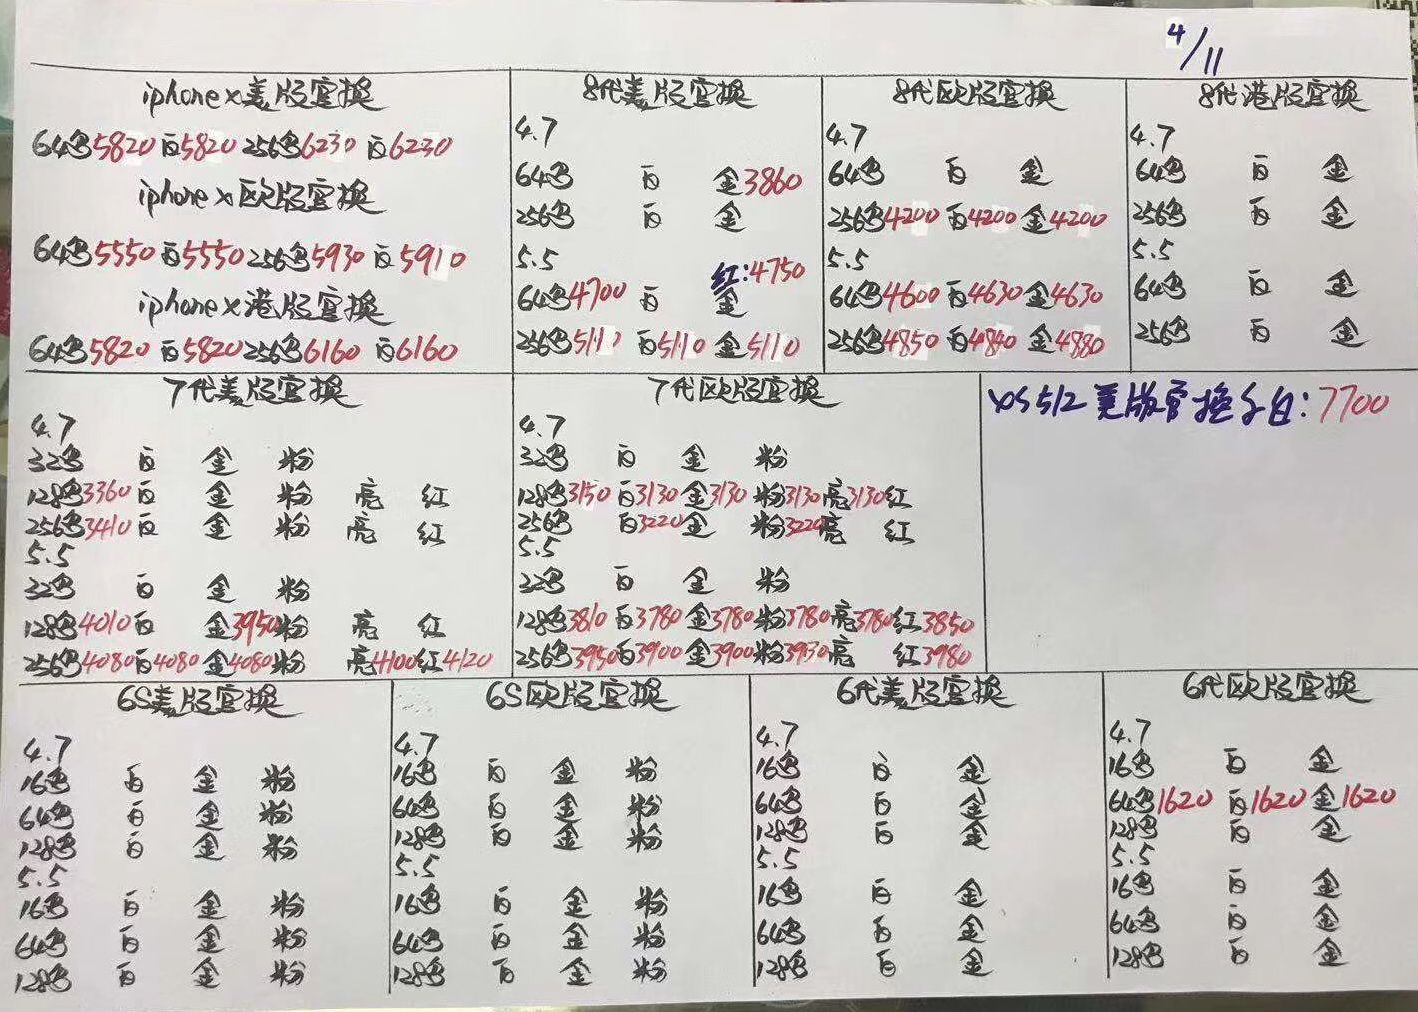 4/11
iphone x美版官换
64黑5820 白5820 256黑6230 白6230
iphone x欧版官换
64黑5550 白5550 256黑5930 白5910
iphone x港版官换
64黑5820 白5820 256黑6160 白6160
8代美版官换
4.7
64黑 白 金3860
256黑 白 金
5.5
红:4750
64黑4700 白 金
256黑5110 白5110 金5110
8代欧版官换
4.7
64黑 白 金
256黑4200 白4200 金4200
5.5
64黑4600 白4630 金4630
256黑4850 白4840 金4880
8代港版官换
4.7
64黑 白 金
256黑 白 金
5.5
64黑 白 金
256黑 白 金
7代美版官换
4.7
32黑 白 金 粉
128黑3360 白 金 粉 亮 红
256黑3410 白 金 粉 亮 红
5.5
32黑 白 金 粉
128黑4010 白 金3950 粉 亮 红
256黑4080 白4080 金4080 粉 亮4100 红4120
7代欧版官换
4.7
32黑 白 金 粉
128黑3150 白3130 金3130 粉3130 亮3130 红
256黑 白3220 金 粉3220 亮 红
5.5
32黑 白 金 粉
128黑3810 白3780 金3780 粉3780 亮3780 红3850
256黑3950 白3900 金3900 粉3930 亮 红3980
XS 512美版官换 白:7700
6S美版官换
4.7
16黑 白 金 粉
64黑 白 金 粉
128黑 白 金 粉
5.5
16黑 白 金 粉
64黑 白 金 粉
128黑 白 金 粉
6S欧版官换
4.7
16黑 白 金 粉
64黑 白 金 粉
128黑 白 金 粉
5.5
16黑 白 金 粉
64黑 白 金 粉
128黑 白 金 粉
6代美版官换
4.7
16黑 白 金
64黑 白 金
128黑 白 金
5.5
16黑 白 金
64黑 白 金
128黑 白 金
6代欧版官换
4.7
16黑 白 金
64黑1620 白1620 金1620
128黑 白 金
5.5
16黑 白 金
64黑 白 金
128黑 白 金